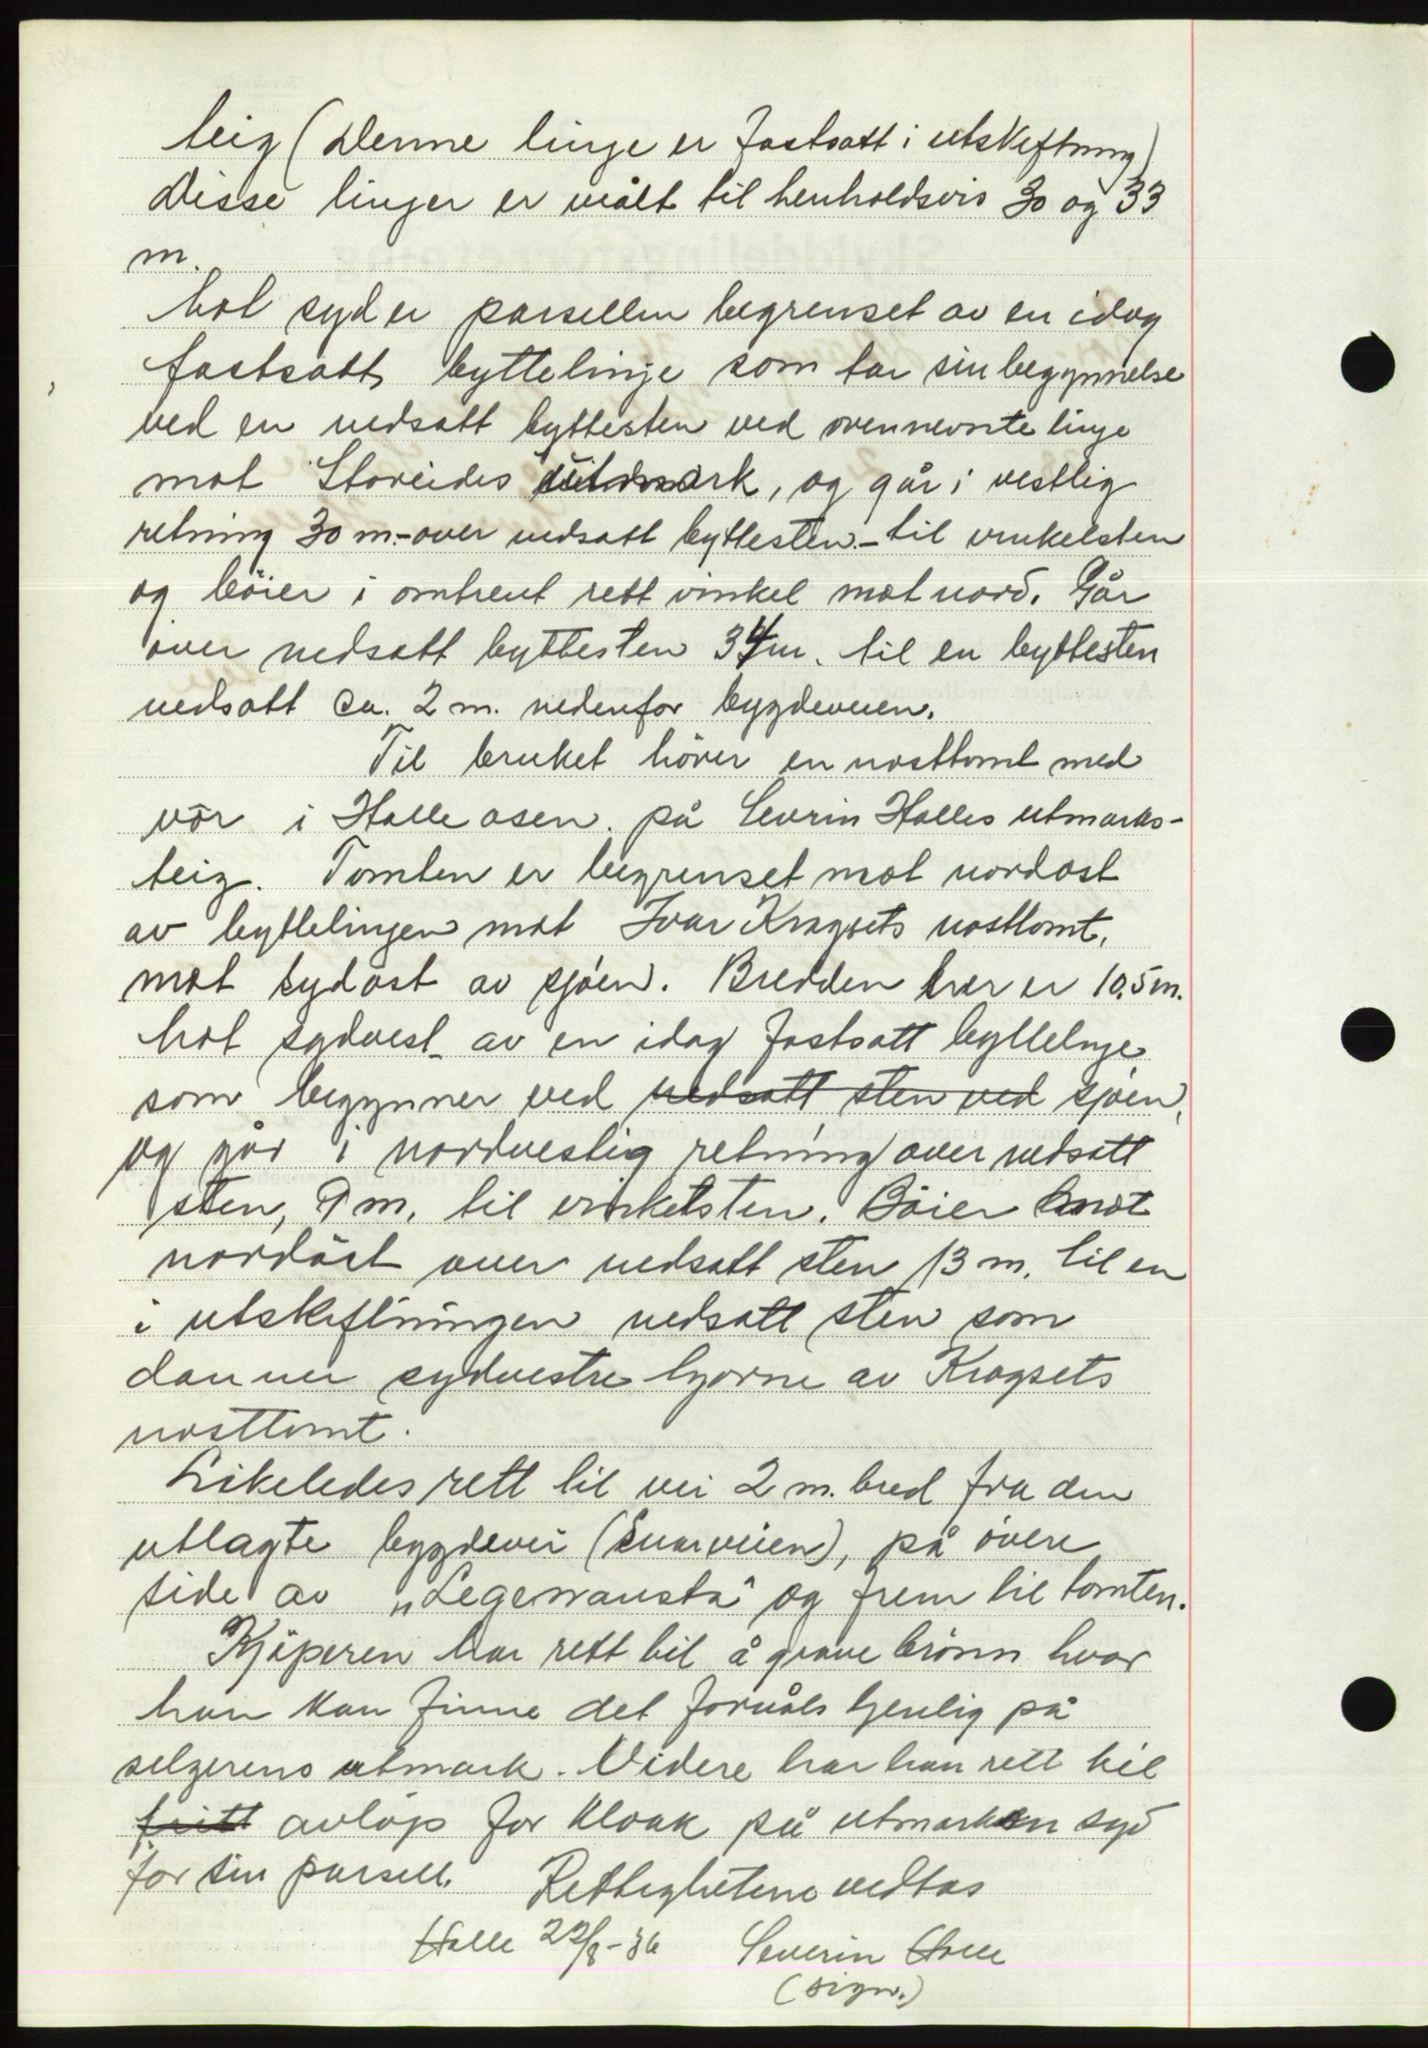 teig (Denne linje er fastsatt i utskiftning)
Disse linjer er målt til henholdsvis 30 og 33
m.
Mot syd er parsellen begrenset av en idag
fastsatt byttelinje som tar sin begynnelse
ved en nedsatt byttesten ved ovennevnte linje
mot Storeides utmark, og går i vestlig
retning 30 m.- over nedsatt byttesten - til vinkelsten
og böier i omtrent rett vinkel mot nord. Går
över nedsatt byttesten 34 m. til en byttesten
nedsatt ca. 2 m. nedenfor bygdeveien.
Til bruket hörer en nosttomt med
vör i Halle osen på Severin Halles utmarks-
teig. Tomten er begrenset mot nordost
av byttelinjen mot Ivar Kragsets nosttomt,
mot sydöst av sjöen. Bredden her er 10,5 m.
Mot sydvest av en idag fastsatt byttelinje
som begynner ved nedsatt sten ved sjöen,
og går i nordvestlig retning over nedsatt
sten, 9 m. til vinkelsten. Böier mot
nordöst over nedsatt sten 13 m. til en
i utskiftningen nedsatt sten som
danner sydvestre hjorne av Kragsets
nosttomt.
Likeledes rett til vei 2 m. bred fra den
utlagte bygdevei (Snarveien), på övere
side av "Legernausta" og frem til tomten.
Kjöperen har rett til å grave brönn hvor
han kan finne det formåls tjenlig på
selgerens utmark. Videre har han rett til
fritt avlöp for kloak på utmarken syd
for sin parsell. Rettighetene vedtas
Halle 22/8-36 Severin Halle
(sign.)